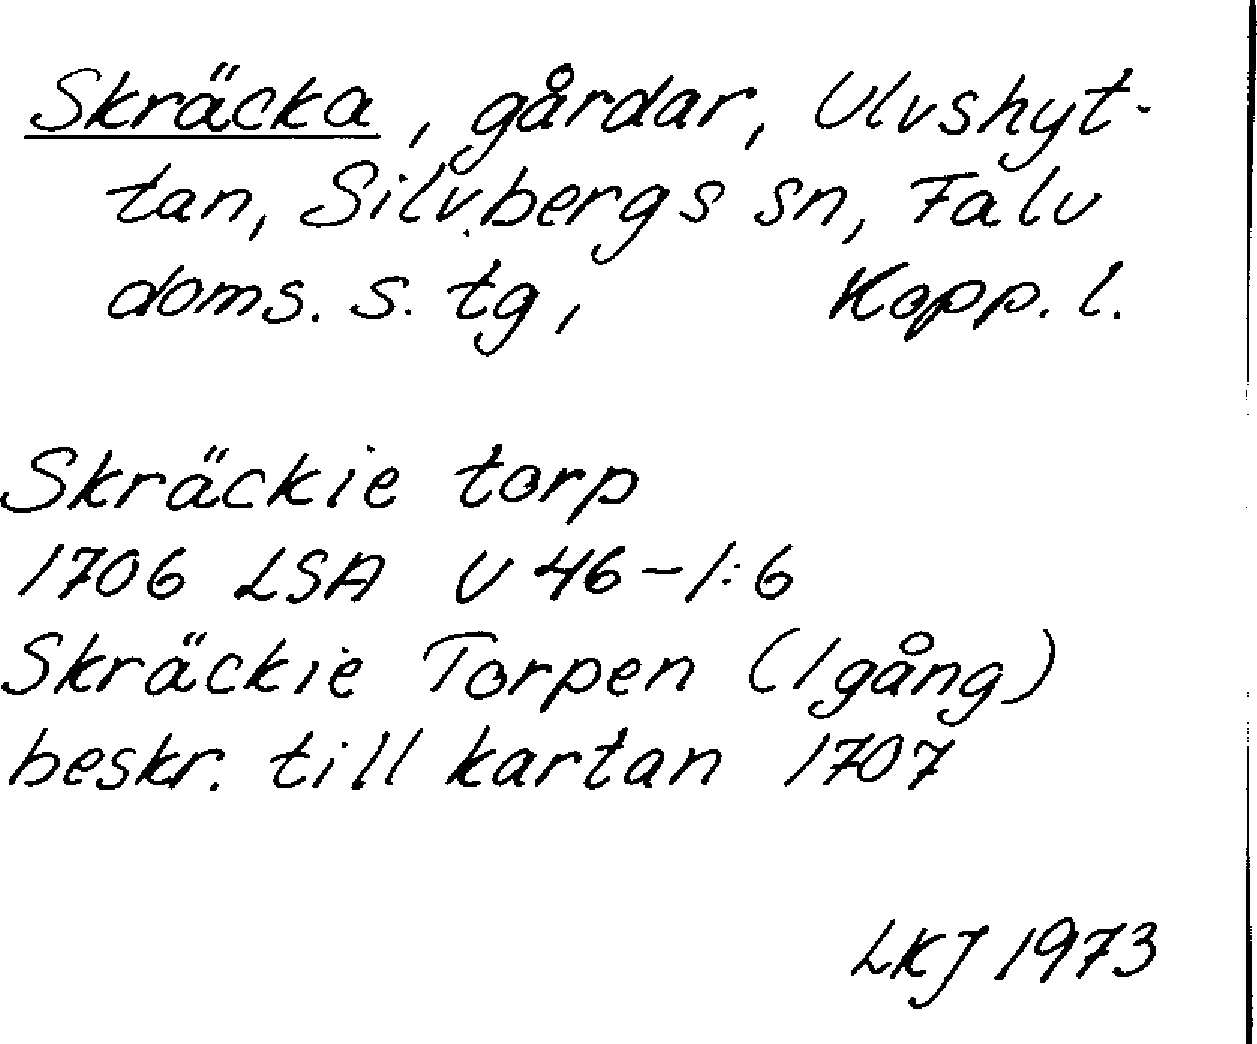 Skräcka, gårdar, Ulvshyt-
tan, Silvbergs sn, Falu
doms. s. tg, Kopp. l.
Skräckie torp
1706 LSA U 46-1:6
Skräckie Torpen (1 gång)
beskr. till kartan 1707
LKJ 1973